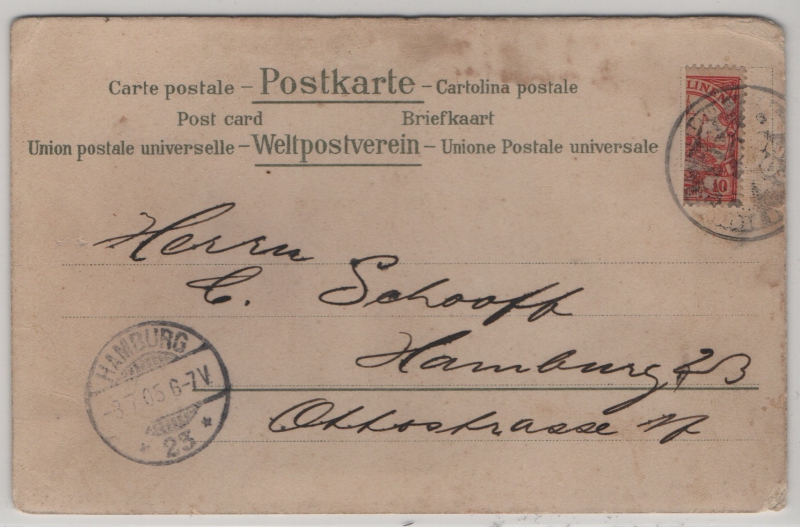 Carte postale – Postkarte – Cartolina postale
Post card Briefkaart
Union postale universelle – Weltpostverein – Unione Postale universale
LINEN
10
Herrn
C. Schooff
Hamburg
Ottostrasse
HAMBURG
7.05 6-7V.
* 23 *